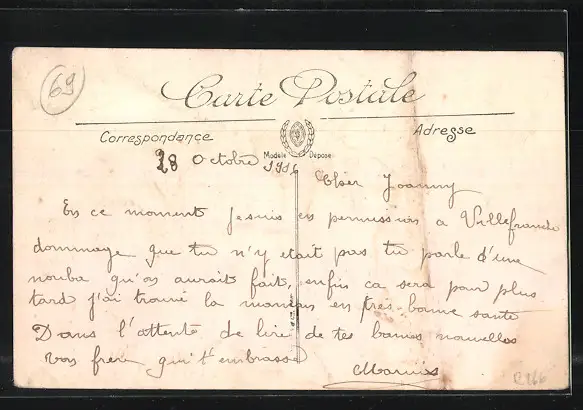 69
Carte Postale
Correspondance
Adresse
Modèle Déposé
28 Octobre 1916
Cher Joanny
En ce moment Je suis en permission a Villefranche
dommage que tu n'y etait pas tu parle d'une
nouba qu'on aurait fait, enfin ca sera pour plus
tard j'ai trouvé la maman en très bonne santé
Dans l'attente de lire de tes bonnes nouvelles
ton frere qui t'embrasse
Marius